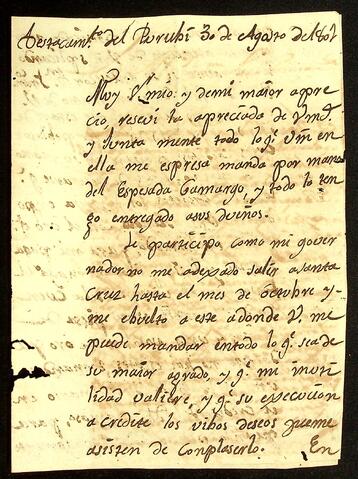 Destacam.to del Puruhi 30 de Agosto de 1801
Muy S.mio: y demi maior apre
cio, reseví la apreciada de Vmd.
y Junta mente todo lo q.e Vm en
ella me espresa manda por mano
del Espesada Camargo, y todo lo ten
go entregado asus dueños.
Le participo como mi gover
nador no me adexado salir asanta
Cruz hasta el mes de octubre y
me ebuelto a este adonde V. me
puede mandar entodo lo q.e sea de
su maior agrado, y q.e mi inuti
lidad valiere, y q.e su execucion
acredite los vibos deseos queme
asisten de Conplaserlo. En